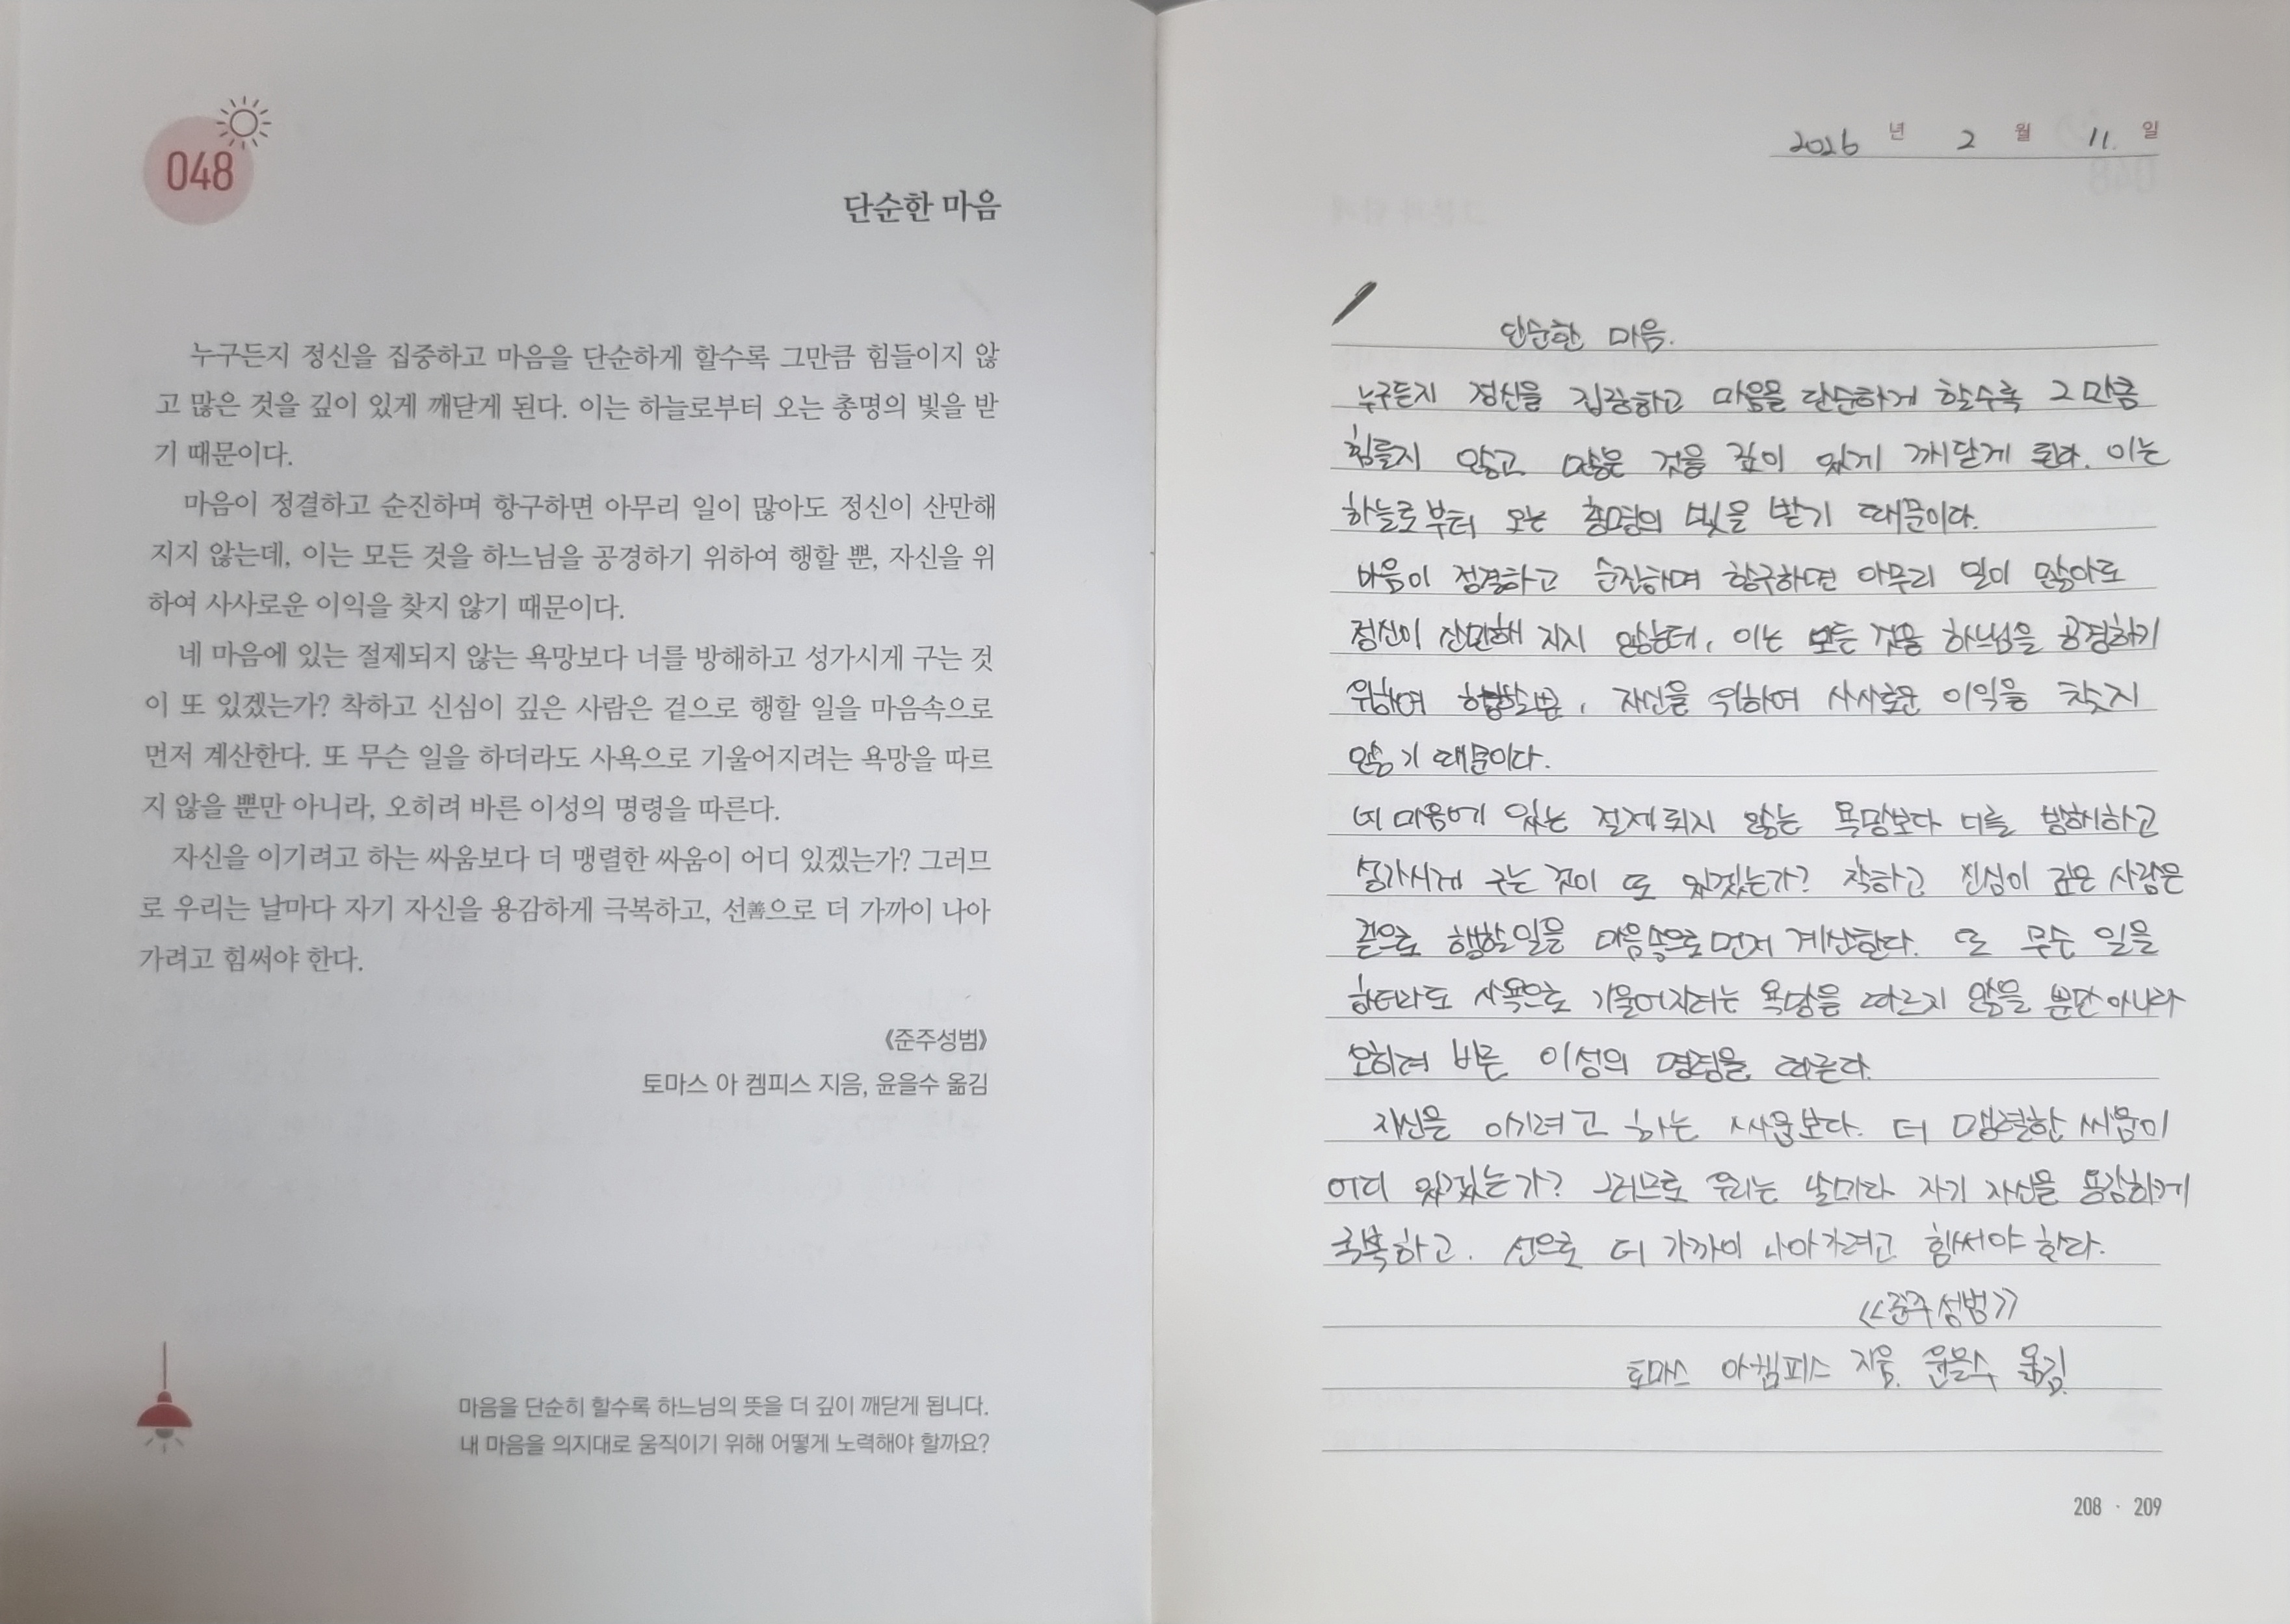 048
단순한 마음
누구든지 정신을 집중하고 마음을 단순하게 할수록 그만큼 힘들이지 않
고 많은 것을 깊이 있게 깨닫게 된다. 이는 하늘로부터 오는 총명의 빛을 받
기 때문이다.
마음이 정결하고 순진하며 항구하면 아무리 일이 많아도 정신이 산만해
지지 않는데, 이는 모든 것을 하느님을 공경하기 위하여 행할 뿐, 자신을 위
하여 사사로운 이익을 찾지 않기 때문이다.
네 마음에 있는 절제되지 않는 욕망보다 너를 방해하고 성가시게 구는 것
이 또 있겠는가? 착하고 신심이 깊은 사람은 겉으로 행할 일을 마음속으로
먼저 계산한다. 또 무슨 일을 하더라도 사욕으로 기울어지려는 욕망을 따르
지 않을 뿐만 아니라, 오히려 바른 이성의 명령을 따른다.
자신을 이기려고 하는 싸움보다 더 맹렬한 싸움이 어디 있겠는가? 그러므
로 우리는 날마다 자기 자신을 용감하게 극복하고, 선善으로 더 가까이 나아
가려고 힘써야 한다.
《준주성범》
토마스 아 켐피스 지음, 윤을수 옮김
마음을 단순히 할수록 하느님의 뜻을 더 깊이 깨닫게 됩니다.
내 마음을 의지대로 움직이기 위해 어떻게 노력해야 할까요?
2026 년 2 월 11. 일
단순한 마음.
누구든지 정신을 집중하고 마음을 단순하게 할수록 그만큼
힘들지 않고 많은 것을 깊이 있게 깨닫게 된다. 이는
하늘로부터 오는 총명의 빛을 받기 때문이다.
마음이 정결하고 순진하며 항구하면 아무리 일이 많아도
정신이 산만해 지지 않는데, 이는 모든 것을 하느님을 공경하기
위하여 행할뿐, 자신을 위하여 사사로운 이익을 찾지
않기 때문이다.
네 마음에 있는 절제되지 않는 욕망보다 너를 방해하고
성가시게 구는 것이 또 있겠는가? 착하고 진심이 깊은 사람은
겉으로 행할일을 마음속으로 먼저 계산한다. 또 무슨 일을
하더라도 사욕으로 기울어지려는 욕망을 따르지 않을 뿐만아니라
오히려 바른 이성의 명령을 따른다.
자신을 이기려고 하는 싸움보다. 더 맹렬한 싸움이
어디 있겠는가? 그러므로 우리는 날마다 자기 자신을 용감하게
극복하고. 선으로 더 가까이 나아가려고 힘써야 한다.
《준주성범》
토마스 아켐피스 지음. 윤을수 옮김.
208 · 209